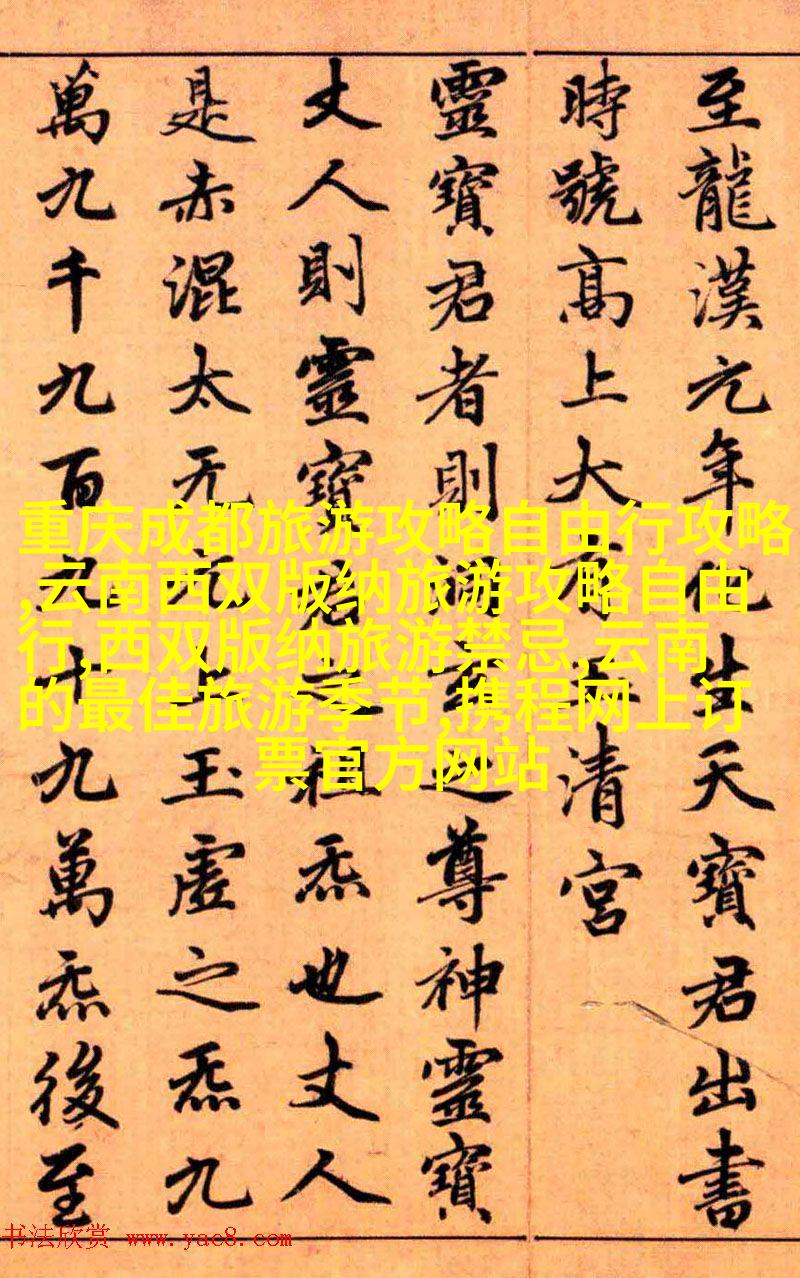 至龍漢元年化生天寶君出書
時號高上大有玉清宮
靈寶君者則洞玄之尊神靈寶
丈人則靈寶君之祖炁也丈人
是赤混太无元上玉虛之炁九
萬九千九百九十九萬炁後至
重庆成都旅游攻略自由行攻略
,云南西双版纳旅游攻略自由
行,西双版纳旅游禁忌,云南
的最佳旅游季节,携程网上订
票官方网站
书法欣赏 www.yac8.com